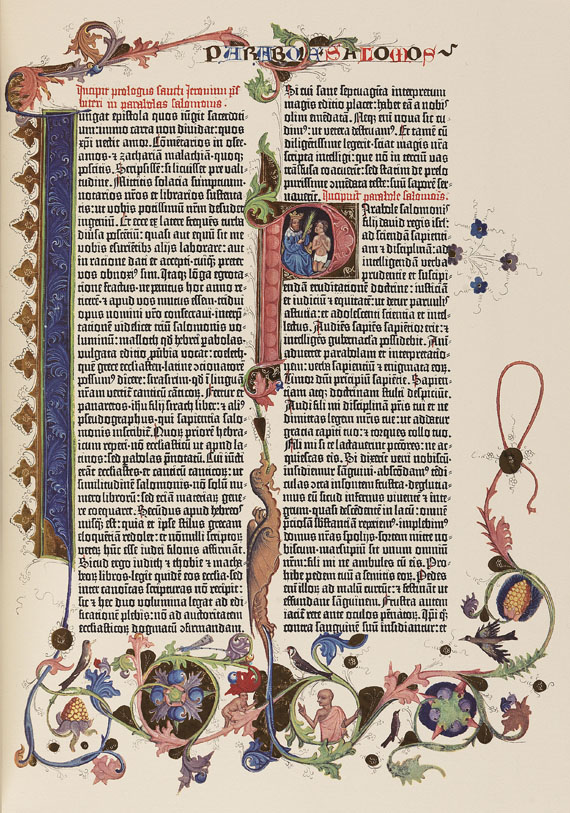 PARABOLE SALOMOIS
Incipit prologus sancti Jeronimi p̄s-
biteri in parabolas salomonis.
Iungat epistola quos iūgit sacerdoti-
um: immo carta non dividat: quos
xp̄i nectit amor. Cōmētarios in ose-
amos · ⁊ zachariam malachiā · quoq;
poscitis. Scripsissē: si licuisset pre vali-
tudine. Mittitis solacia sumptuum·
notarios nr̄os et librarios sustenta-
tis: ut vobis potissimū nr̄m desudet
ingeniū. Et ecce ex latere frequēs turba
diversa poscentiū: quasi aut equū sit me
vobis esurientib; alijs laborare: aut
in ratione dati et accepti · cuiq; preter
vos obnoxi⁹ sim. Itaq; lōga egrota-
tione fractus · ne penitus hoc anno re-
ticerē · ⁊ apud vos mutus essem · tridui
opus nomini vr̄o consecravi · interp̄-
tationē videlicet triū salomonis vo-
luminū: masloth qd̄ hebrei pabolas·
vulgata editio ꝓūbia vocat: coeleth·
quē grece ecclesiastē · latine cōcionatorē
possum⁹ dicere: sirasirim · qd̄ ī linguā
nr̄am vertit̄ canticū canticorꝝ. Fertur et
panaretos · ihu filij sirach liber: ⁊ ali⁹
pseudographus · qui sapientia salo-
monis inscribit̄. Quorꝝ priorē hebra-
icum repperi · nō ecclesiasticū ut apud la-
tinos: sed pabolas p̄notatū. Cui iūcti
erāt ecclesiastes · et canticū canticorꝝ: ut
similitudinē salomonis · nō solū nu-
mero librorū: sed etiā materiarꝝ gene-
re coequaret. Secūdus apud hebreos
nusq̄ est: quia et ipse stilus grecam
eloquētiā redolet: et nōnulli scriptorꝝ
veterꝝ hūc esse iudei filonis affirmāt.
Sicud ergo iudith ⁊ thobie ⁊ macha-
beorꝝ libros · legit quidē eos eccl̄ia · sed
inter canonicas scripturas nō recipit:
sic ⁊ hec duo volumina legat ad edi-
ficationē plebis: nō ad auctoritatem
ecclesiasticorꝝ dogmatū ōfirmandam.
Si cui sane septuagīta interpretum
magis editio placet: habet eā a nobis
olim emēdatā. Neq; eni nova sic cu-
dim⁹: ut vetera destruam⁹. Et tamē cū
diligētissime legerit · sciat magis nr̄a
scripta intelligi: que nō in terciū vas
trāsfusa coacuerīt: sed statim de prelo
purissime ōmēdata teste: suū sapore ser-
vaverīt. Incipiūt parabole salomois.
Parabole salomonis
filij david regis isrl̄:
ad sciendā sapienti-
am ⁊ disciplinā: ad
intelligendā verba
prudentie et suscipi-
endā eruditationē doctrine: iusticiā
et iudiciū ⁊ equitatē: ut detur parvulis
astutia: et adolescenti scientia et intel-
lectus. Audiēs sapiēs sapiētior erit: ⁊
intelligēs gubernacla possidebit. Ani-
advertet parabolam et interpretatio-
nem: verba sapientiū ⁊ enigmata eorꝝ.
Timor dn̄i principiū sapiētie. Sapien-
tiam atq; doctrinam stulti despiciūt.
Audi fili mi disciplinā pr̄is tui et ne
dimittas legem mr̄is tue: ut addatur
gratia capiti tuo: ⁊ torques collo tuo.
Fili mi si te lactaverint pctōres: ne ac-
quiescas eis. Si dixerit veni nobiscū·
insidiemur sāguini · abscōdam⁹ tēdi-
culas cōtra insontem frustra · deglutia-
mus eū sicud infernus viventē ⁊ inte-
grum · quasi descēdentē in lacū: omnē
p̄ciosā substātiā repiem⁹ · implebim⁹
domus nr̄as spolijs · sortem mitte no-
biscum · marsupiū sit unum omniū
nr̄m: fili mi ne ambules cū eis. Pro-
hibe pedem tuū a semitis eorꝝ. Pedes
eni illorꝝ ad malū currūt: ⁊ festināt ut
effundant sāguinem. Frustra autem
iacit̄ rete ante oculos pēnatorꝝ. Ip̄i q̄;
contra sanguinē suū insidiantur: et